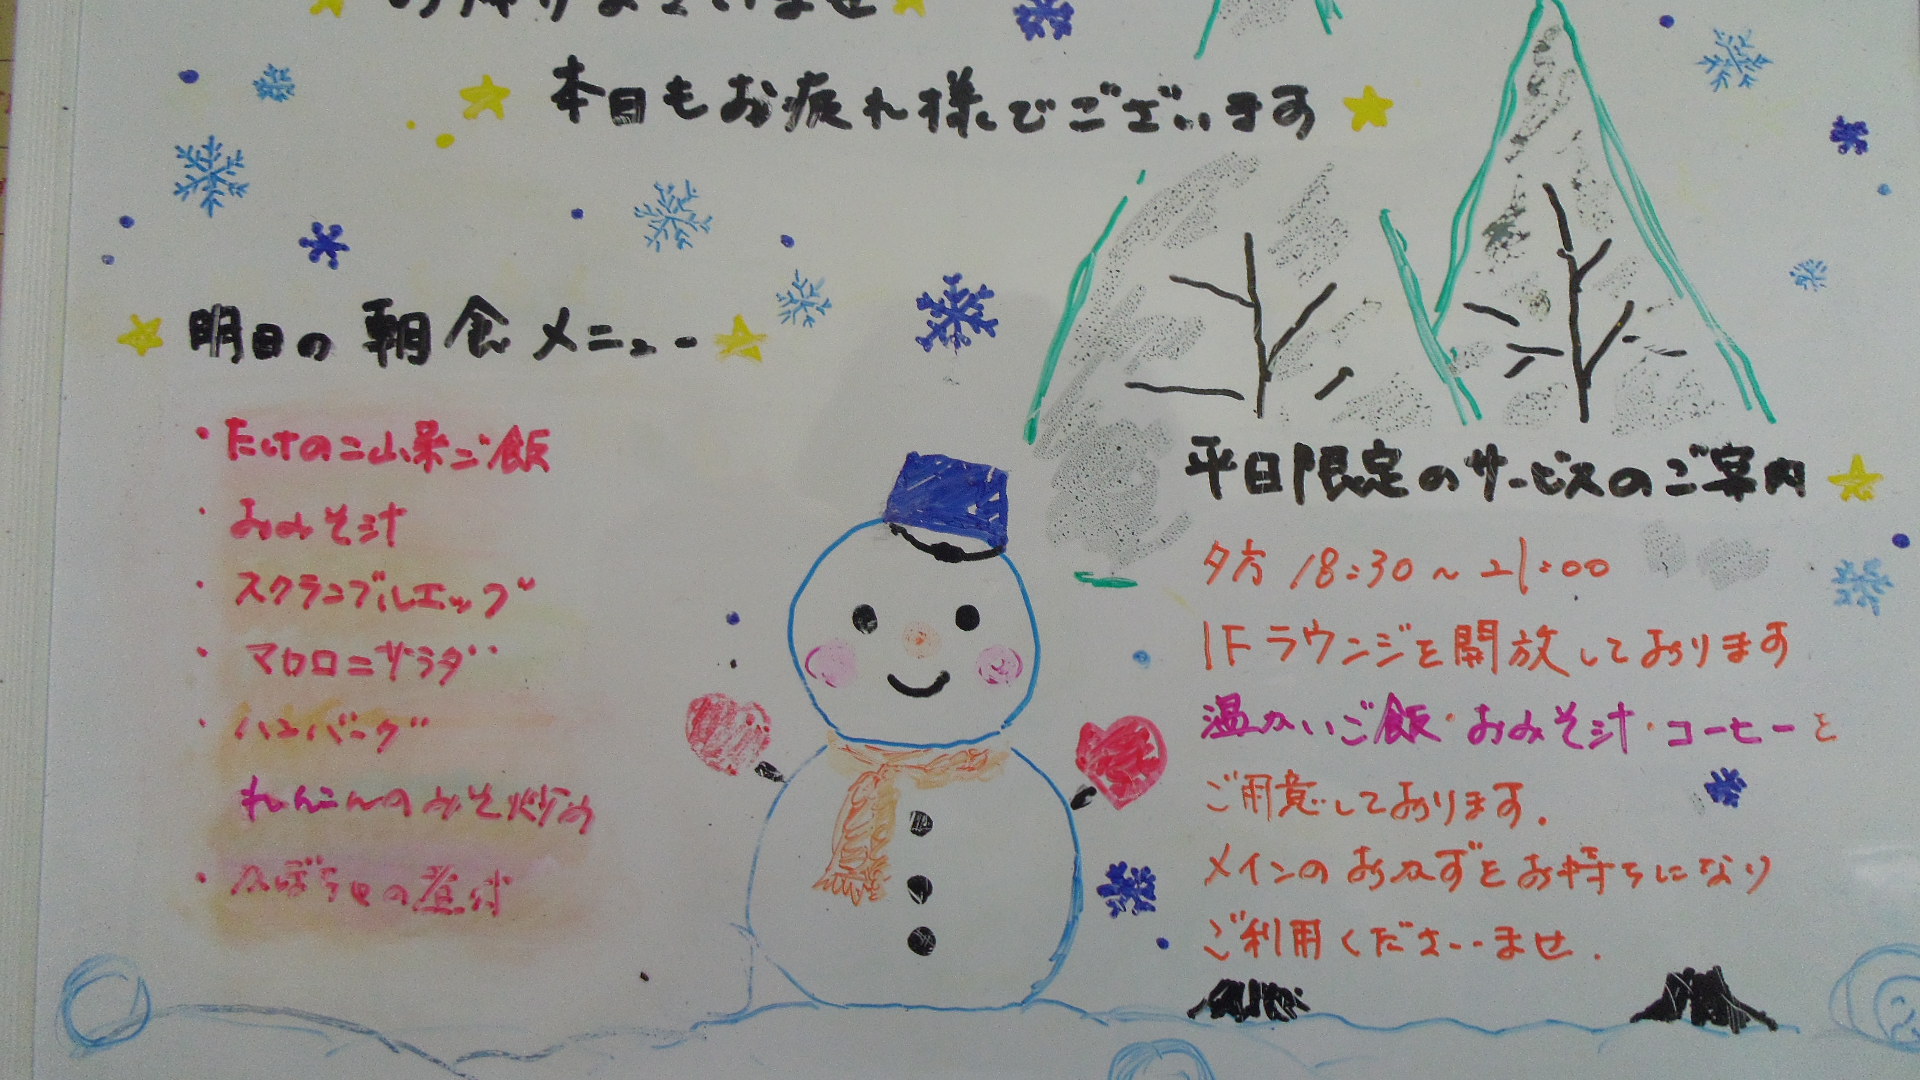 お帰りなさいませ
本日もお疲れ様でございます
明日の朝食メニュー
・たけのこ山菜ご飯
・おみそ汁
・スクランブルエッグ
・マロロニサラダ
・ハンバーグ
れんこんのみそ炒め
・かぼちゃの煮付
平日限定のサービスのご案内
夕方 18:30〜21:00
1Fラウンジを開放しております
温かいご飯・おみそ汁・コーヒーと
ご用意しております.
メインのおかずをお持ちになり
ご利用くださいませ.